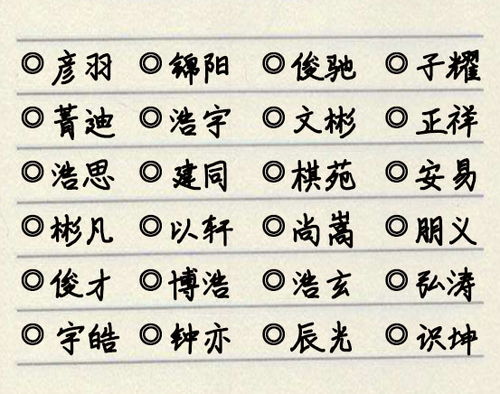 ◎彦羽 ◎锦阳 ◎俊驰 ◎子耀
◎菁迪 ◎浩宇 ◎文彬 ◎正祥
◎浩思 ◎建同 ◎棋苑 ◎安易
◎彬凡 ◎以轩 ◎尚嵩 ◎朋义
◎俊才 ◎博浩 ◎浩玄 ◎弘涛
◎宇皓 ◎钟亦 ◎辰光 ◎识坤